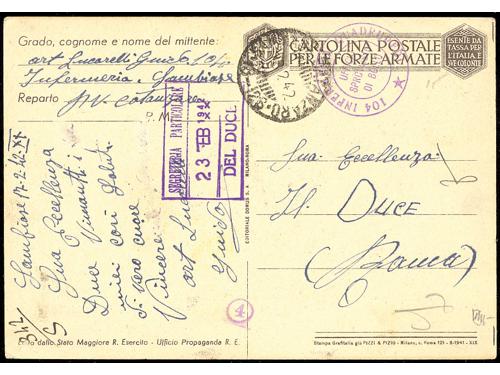 Grado, cognome e nome del mittente:
art Lucarelli Guido
Infermeria Sambiase
Reparto
P. M.
CARTOLINA POSTALE
PER LE FORZE ARMATE
ESENTE DA
TASSA PER
L'ITALIA E
SUE COLONIE
SEGRETERIA PARTICOLARE
23 FEB 1942
DEL DUCE
Sambiase 17-2-42-XX
Sua Eccellenza
Duce
miei cari saluti
Vincere
art Lucarelli
Guido
Sua Eccellenza
Il DUCE
(Roma)
4
EDITORIALE DOMUS S. A. MILANO-ROMA
Edita dallo Stato Maggiore R. Esercito - Ufficio Propaganda R. E.
Stampa Grafitalia già PIZZI & PIZIO - Milano, v. Roma 125 - 8-1941 - XIX